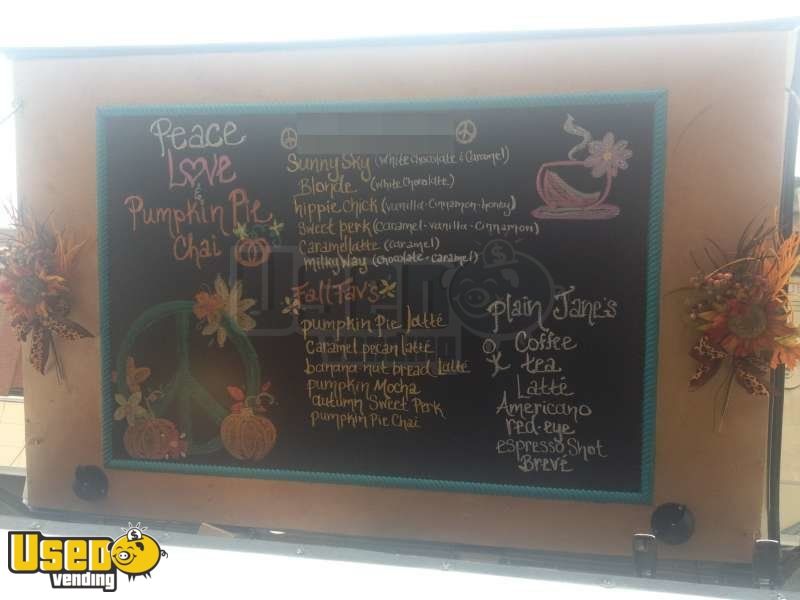 Peace
Love
&
Pumpkin Pie
Chai
Sunny Sky (White Chocolate & Caramel)
Blonde (White Chocolate)
hippie chick (vanilla-Cinnamon-honey)
Sweet perk (Caramel-vanilla-Cinnamon)
Caramelatte (Caramel)
milky Way (Chocolate-Caramel)
Fall Favs
pumpkin Pie latté
Caramel pecan latté
banana nut bread Latté
pumpkin Mocha
autumn Sweet Perk
pumpkin Pie Chai
plain Jane's
Coffee
tea
Latté
Americano
red-eye
espresso Shot
Brevé
USED
vending